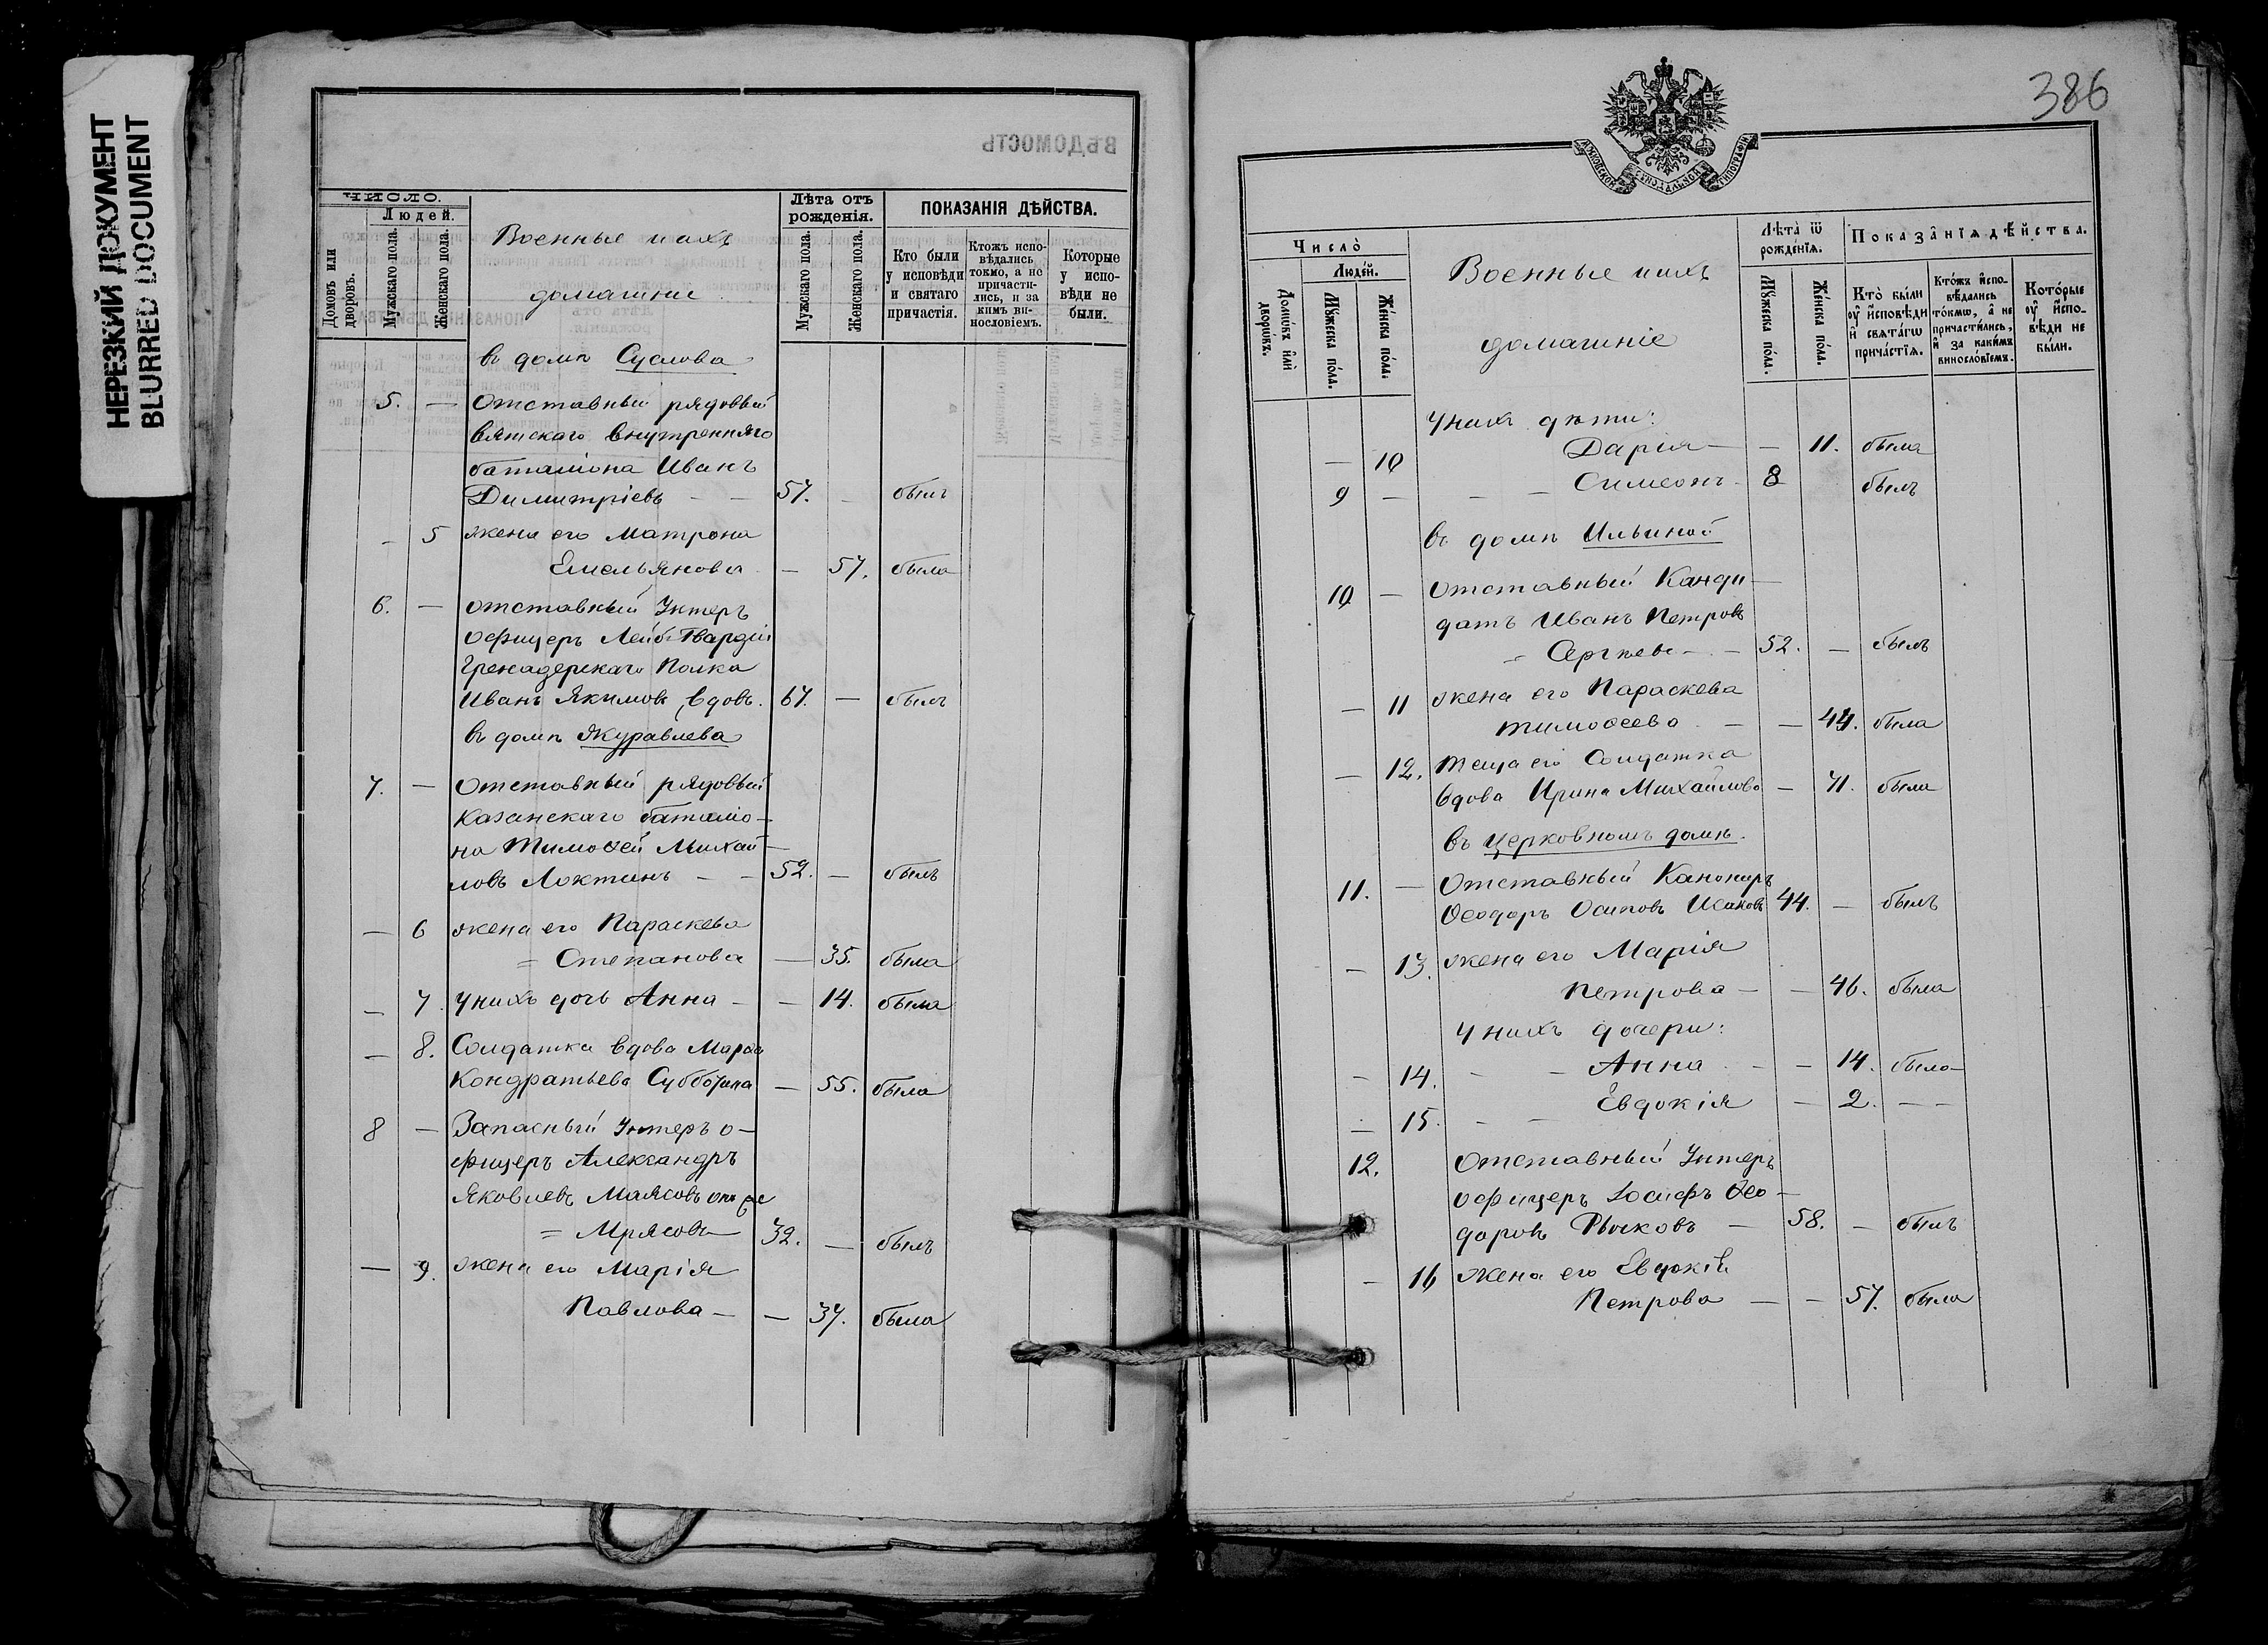 НЕРЕЗКИЙ ДОКУМЕНТ
BLURRED DOCUMENT
ВѢДОМОСТЬ
ЧИСЛО.
Людей.
Домовъ или дворовъ.
Мужскаго пола.
Женскаго пола.
Военные и ихъ
домашніе
Лѣта отъ рожденія.
Мужскаго пола.
Женскаго пола.
ПОКАЗАНІЯ ДѢЙСТВА.
Кто были у исповѣди и святаго причастія.
Ктожъ исповѣдались токмо, а не причастились, и за какимъ винословіемъ.
Которые у исповѣди не были.
въ домѣ Суслова
5. — Отставный рядовый
вятскаго внутренняго
баталіона Иванъ
Димитріевъ — — 57. — былъ
- 5 жена его Матрона
Емельянова — 57. была
6. — отставный Унтеръ
офицеръ Лейбъ Гвардіи
Гренадерскаго Полка
Иванъ Якимовъ, вдовъ. 67. — былъ
въ домѣ Журавлева
7. — Отставный рядовый
Казанскаго баталіо-
на Тимоѳей Михай-
ловъ Локтинъ — — 52. — былъ
— 6 жена его Параскева
= Степанова — 35. была
— 7. у нихъ дочь Анна — — 14. была
— 8. Солдатка вдова Марѳа
Кондратьева Субботина — 55. была
8 — Запасный Унтеръ о-
фицеръ Александръ
Яковлевъ Маясовъ онъ же
= Мрясовъ 32. — былъ
— 9. жена его Марія
Павлова — — 37. была
386
Число̀
Людей.
Домѡвъ и҆лѝ дворѡвъ.
Мꙋжеска пола.
Женска пола.
Военные и ихъ
домашніе
Лѣта ѿ рожденїѧ.
Мꙋжеска пола.
Женска пола.
Показанїѧ дѣйства.
Кто были оу исповѣди и свѧтагѡ причастїѧ.
Ктожъ исповѣдались токмѡ, а не причастились, и за какимъ винословїемъ.
Которые оу исповѣди не были.
у нихъ дѣти:
— 10 Дарія — — 11. была
9 — — — Симеонъ - 8 былъ
въ домѣ Ильиной
10 — Отставный Канди-
датъ Иванъ Петровъ
= Сергѣевъ — — 52. — былъ
— 11 жена его Параскева
Тимоѳеева — — 44. была
— 12. теща его Солдатка
вдова Ирина Михайлова — 71. была
въ церковномъ домѣ.
11. — Отставный Канониръ
Ѳеодоръ Осиповъ Исаковъ 44. — былъ
— 13. жена его Марія
Петрова — — 46. была
у нихъ дочери:
— 14. — — Анна — — 14. была
— 15. — — Евдокія — 2. — —
12. Отставный Унтеръ
офицеръ Іосифъ Ѳео-
доровъ Рычковъ — 58. — былъ
— 16 жена его Евдокія
Петрова — — 57. была